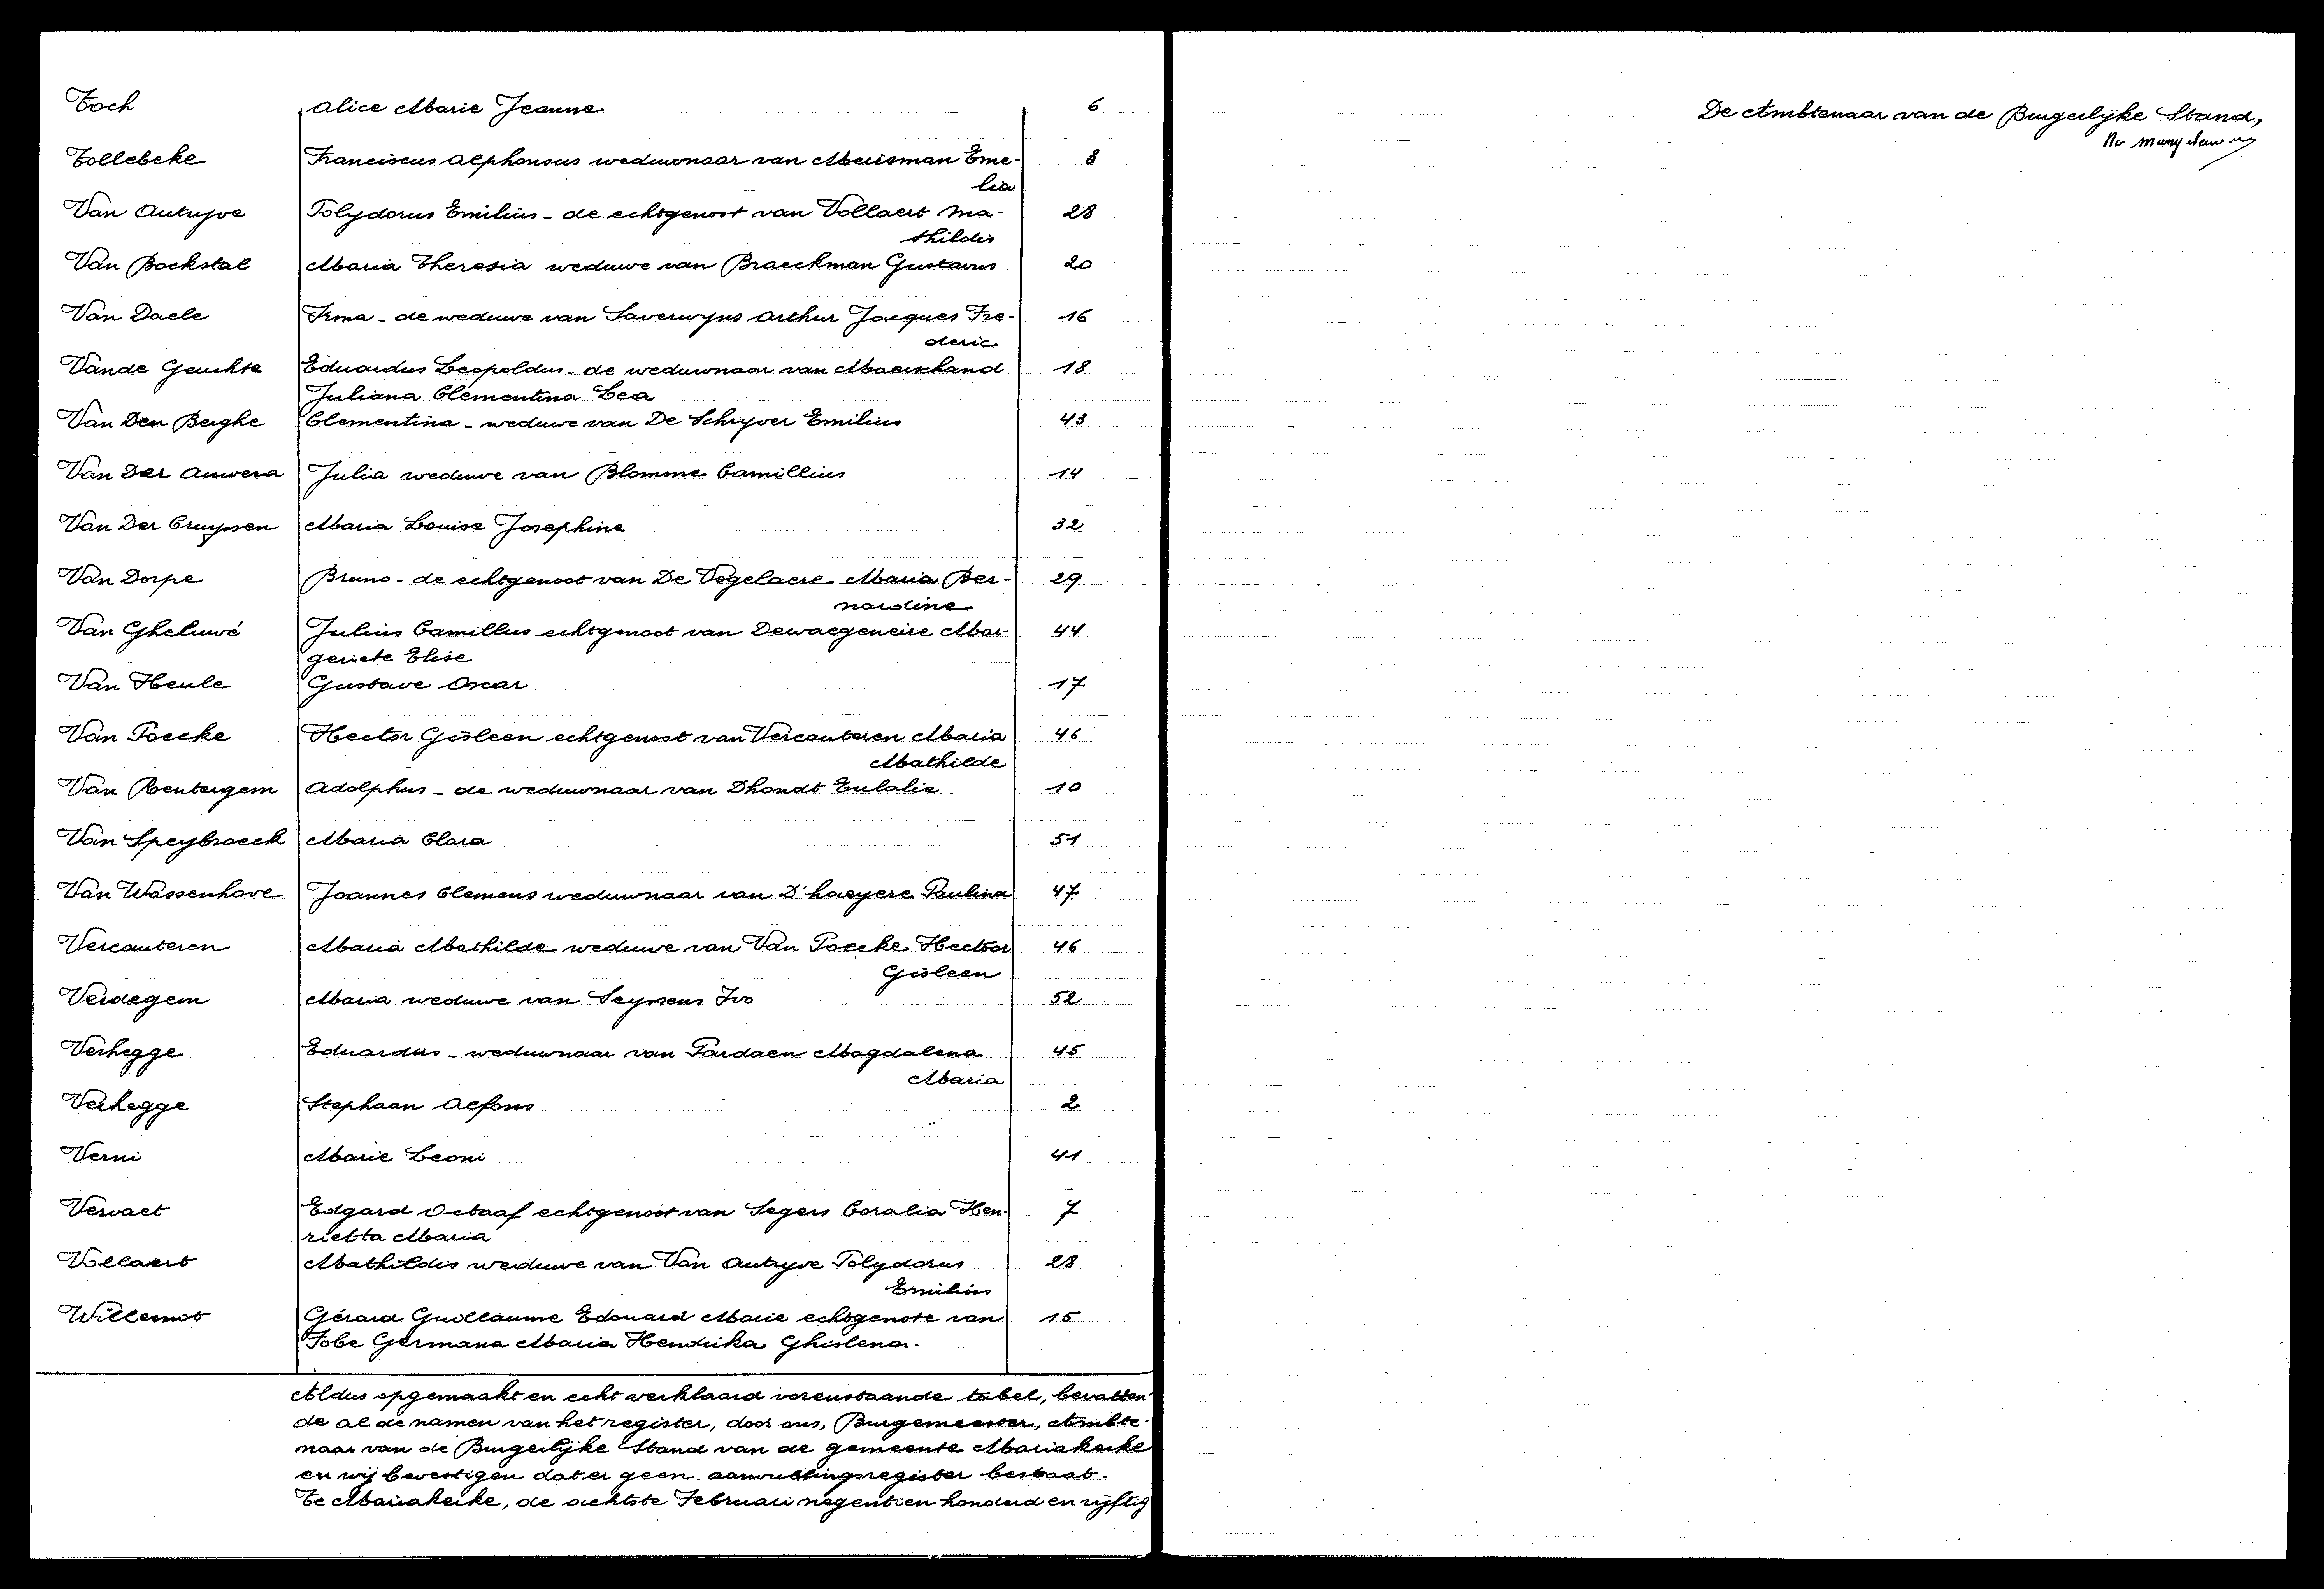 Toch Alice Marie Jeanne 6
Tollebeke Franciscus Alphonsus weduwnaar van Meuisman Eme- 8
lia
Van Autryve Polydorus Emilius - de echtgenoot van Vollaert Ma- 28
thildis
Van Bockstal Maria Theresia weduwe van Braeckman Gustavus 20
Van Daele Irma - de weduwe van Saverwyns Arthur Jacques Fre- 16
deric
Vande Geuchte Eduardus Leopoldus - de weduwnaar van Maerschand 18
Juliana Clementina Lea
Van Den Berghe Clementina - weduwe van De Schryver Emilius 43
Van Der Auwera Julia weduwe van Blomme Camillius 14
Van Der Cruyssen Maria Louise Josephine 32
Van Dorpe Bruno - de echtgenoot van De Vogelaere Maria Ber- 29
nardine
Van Gheluwé Julius Camillus echtgenoot van Dewaegeneire Mar- 44
geriete Elise
Van Heule Gustave Oscar 17
Van Poecke Hector Gisleen echtgenoot van Vercauteren Maria 46
Mathilde
Van Rentergem Adolphus - de weduwnaar van Dhondt Eulalie 10
Van Speybroeck Maria Clara 51
Van Wassenhove Joannes Clemens weduwnaar van D'haeyere Paulina 47
Vercauteren Maria Mathilde weduwe van Van Poecke Hectoor 46
Gisleen
Verdegem Maria weduwe van Seyssens Ivo 52
Verhegge Eduardus - weduwnaar van Pardaen Magdalena 45
Maria
Verhegge Stephaan Alfons 2
Verni Marie Leoni 41
Vervaet Edgard Octaaf echtgenoot van Segers Coralia Hen- 7
rietta Maria
Vollaert Mathildis weduwe van Van Autryve Polydorus 28
Emilius
Willemot Gérard Guillaume Edouard Marie echtgenote van 15
Tobe Germana Maria Hendrika Ghislena.
Aldus opgemaakt en echt verklaard vorenstaande tabel, bevatten-
de al de namen van het register, door ons, Burgemeester, Ambte-
naar van de Burgerlijke Stand van de gemeente Mariakerke
en wij bevestigen dat er geen aanvullingsregister bestaat.
Te Mariakerke, de achtste Februari negentien honderd en vijftig
De Ambtenaar van de Burgerlijke Stand,